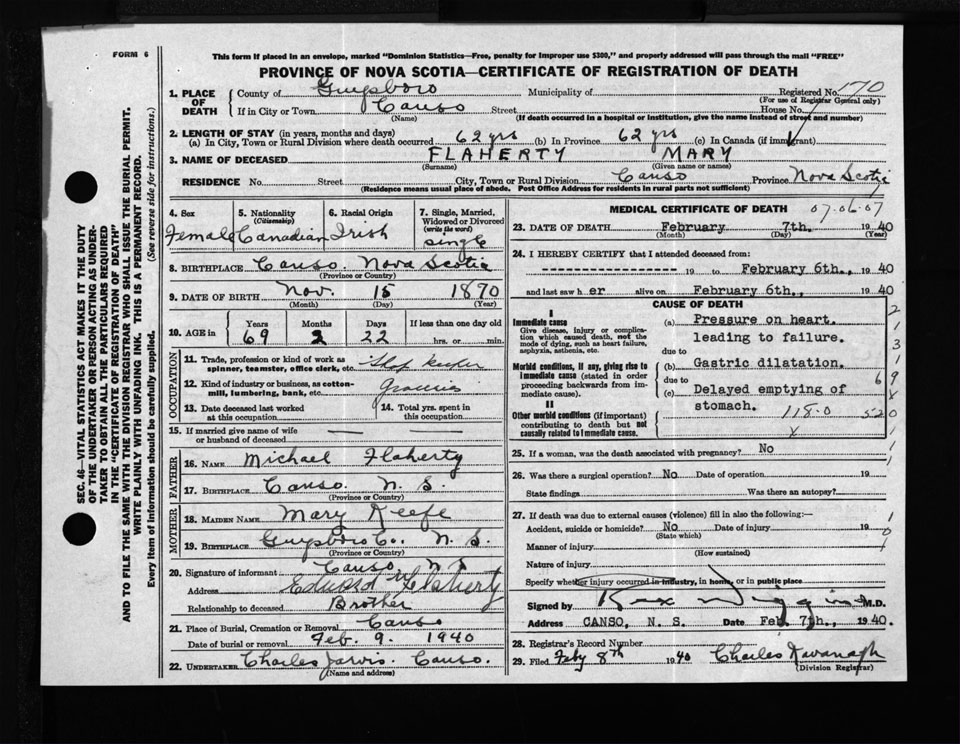 FORM 6
This form if placed in an envelope, marked "Dominion Statistics—Free, penalty for improper use $300," and properly addressed will pass through the mail "FREE"
PROVINCE OF NOVA SCOTIA—CERTIFICATE OF REGISTRATION OF DEATH
SEC. 46—VITAL STATISTICS ACT MAKES IT THE DUTY
OF THE UNDERTAKER OR PERSON ACTING AS UNDER-
TAKER TO OBTAIN ALL THE PARTICULARS REQUIRED
IN THE "CERTIFICATE OF REGISTRATION OF DEATH"
AND TO FILE THE SAME WITH THE DIVISION REGISTRAR WHO SHALL ISSUE THE BURIAL PERMIT.
WRITE PLAINLY WITH UNFADING INK. THIS IS A PERMANENT RECORD.
Every item of information should be carefully supplied. (See reverse side for instructions.)
1. PLACE OF DEATH
County of Guysboro Municipality of Registered No. 170
(For use of Registrar General only)
If in City or Town Canso Street House No.
(Name) (If death occurred in a hospital or institution, give the name instead of street and number)
2. LENGTH OF STAY (in years, months and days)
(a) In City, Town or Rural Division where death occurred 62 yrs (b) In Province 62 yrs (c) In Canada (if immigrant)
3. NAME OF DECEASED FLAHERTY MARY
(Surname) (Given name or names)
RESIDENCE No. Street City, Town or Rural Division Canso Province Nova Scotia
(Residence means usual place of abode. Post Office Address for residents in rural parts not sufficient)
4. Sex 5. Nationality (Citizenship) 6. Racial Origin 7. Single, Married, Widowed or Divorced (write the word)
Female Canadian Irish single
8. BIRTHPLACE Canso. Nova Scotia
(Province or Country)
9. DATE OF BIRTH Nov. 15 1870
(Month) (Day) (Year)
10. AGE in Years Months Days If less than one day old
69 2 22 hrs. or min.
OCCUPATION
11. Trade, profession or kind of work as spinner, teamster, office clerk, etc. Shop keeper
12. Kind of industry or business, as cotton-mill, lumbering, bank, etc. Groceries
13. Date deceased last worked at this occupation
14. Total yrs. spent in this occupation
15. If married give name of wife or husband of deceased — —
FATHER
16. NAME Michael Flaherty
17. BIRTHPLACE Canso N. S.
(Province or Country)
MOTHER
18. MAIDEN NAME Mary Keefe
19. BIRTHPLACE Guysboro Co. N. S.
(Province or Country)
20. Signature of informant Canso, N S
Address Edward Flaherty
Relationship to deceased Brother
21. Place of Burial, Cremation or Removal Canso
Date of burial or removal Feb. 9. 1940
22. UNDERTAKER Charles Jarvis. Canso.
(Name and address)
MEDICAL CERTIFICATE OF DEATH 07.06.07
23. DATE OF DEATH February 7th. 1940
(Month) (Day) (Year)
24. I HEREBY CERTIFY that I attended deceased from:
19 to February 6th., 1940
and last saw her alive on February 6th., 1940
CAUSE OF DEATH
I
Immediate cause
Give disease, injury or complication which caused death, not the mode of dying, such as heart failure, asphyxia, asthenia, etc.
(a) Pressure on heart.
leading to failure.
due to
Morbid conditions, if any, giving rise to immediate cause (stated in order proceeding backwards from immediate cause).
(b) Gastric dilatation.
due to
(c) Delayed emptying of
stomach.
II
Other morbid conditions (if important) contributing to death but not causally related to immediate cause.
118.0 520
x
25. If a woman, was the death associated with pregnancy? No
26. Was there a surgical operation? No Date of operation 19
State findings Was there an autopsy?
27. If death was due to external causes (violence) fill in also the following:—
Accident, suicide or homicide? No Date of injury 19
(State which)
Manner of injury
(How sustained)
Nature of injury
Specify whether injury occurred in industry, in home, or in public place
Signed by Rex M.D.
Address CANSO, N. S. Date Feb. 7th., 1940.
28. Registrar's Record Number
29. Filed Feby 8th 1940 Charles Kavanagh
(Division Registrar)